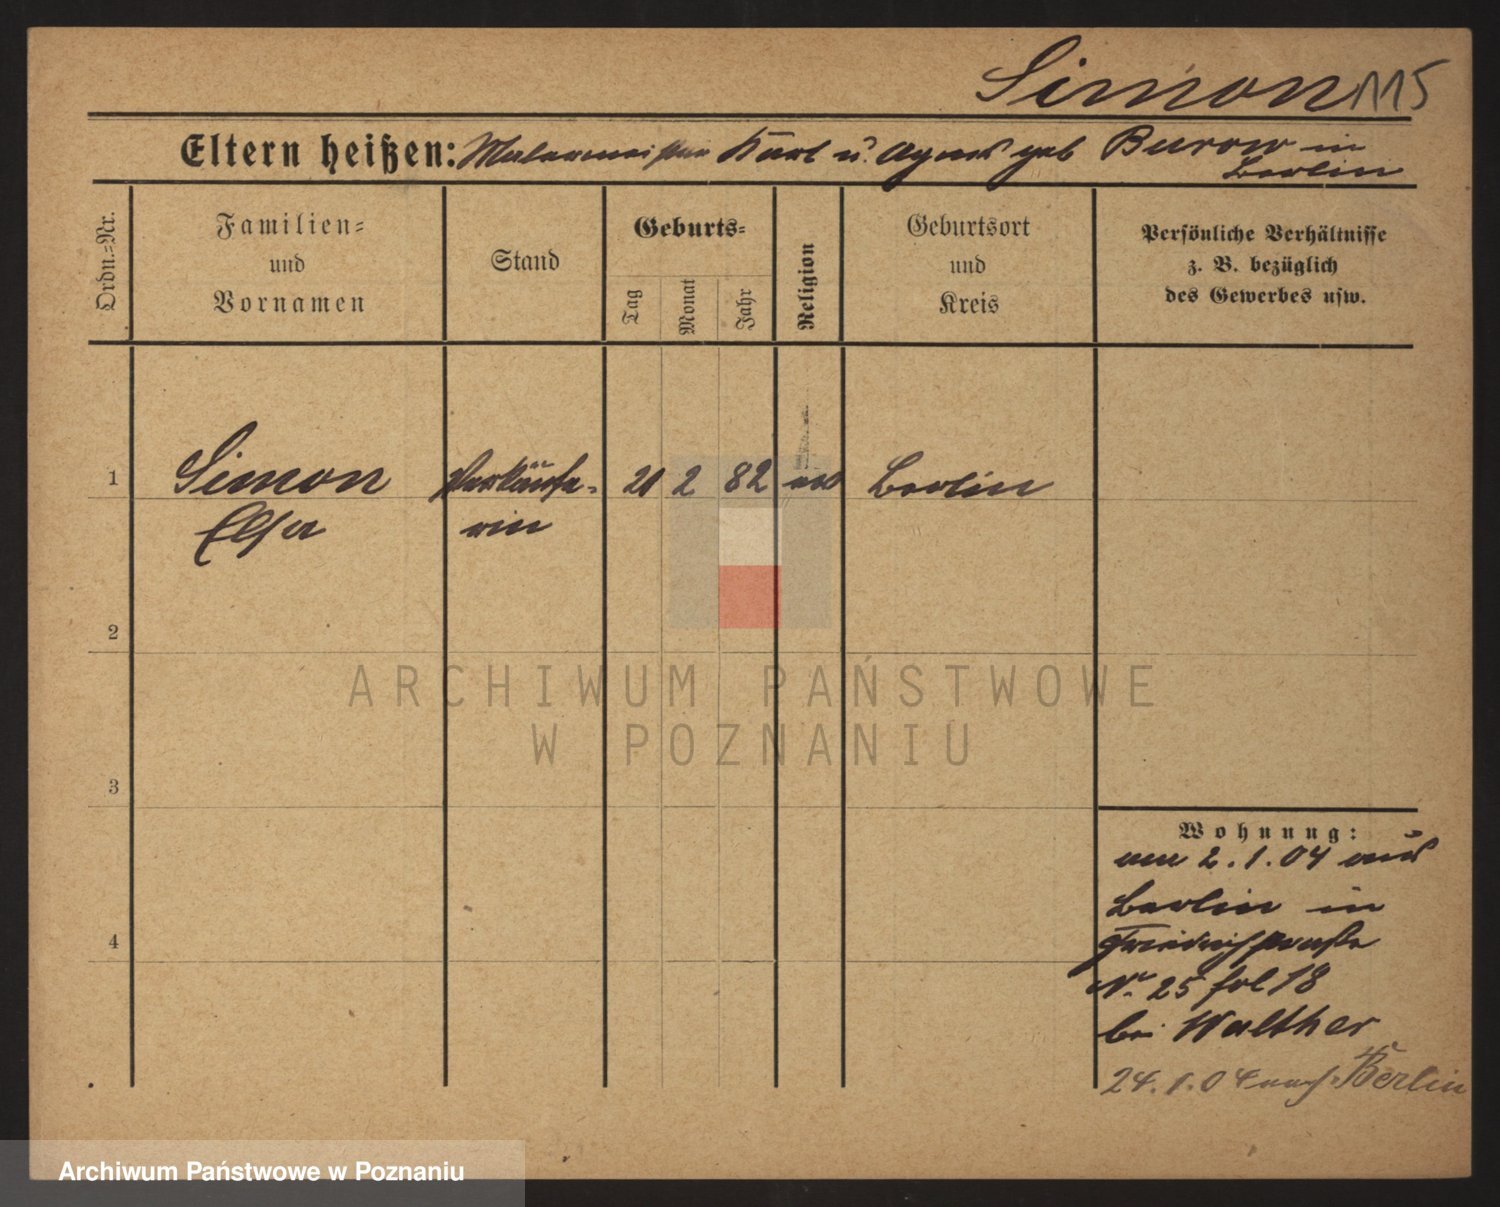 Simon 115
Eltern heißen: Malermeister Karl u. Agnes geb Burow in
Berlin
Ordn.-Nr.
Familien-
und
Vornamen
Stand
Geburts-
Tag
Monat
Jahr
Religion
Geburtsort
und
Kreis
Persönliche Verhältnisse
z. B. bezüglich
des Gewerbes usw.
1
Simon
Elsa
Verkäufe-
rin
21 2 82
Berlin
2
ARCHIWUM PAŃSTWOWE
W POZNANIU
3
Wohnung:
2.1.04 aus
Berlin in
Friedrichstraße
Nr. 25 fol 18
bei Walther
24.1.04 nach Berlin
4
Archiwum Państwowe w Poznaniu